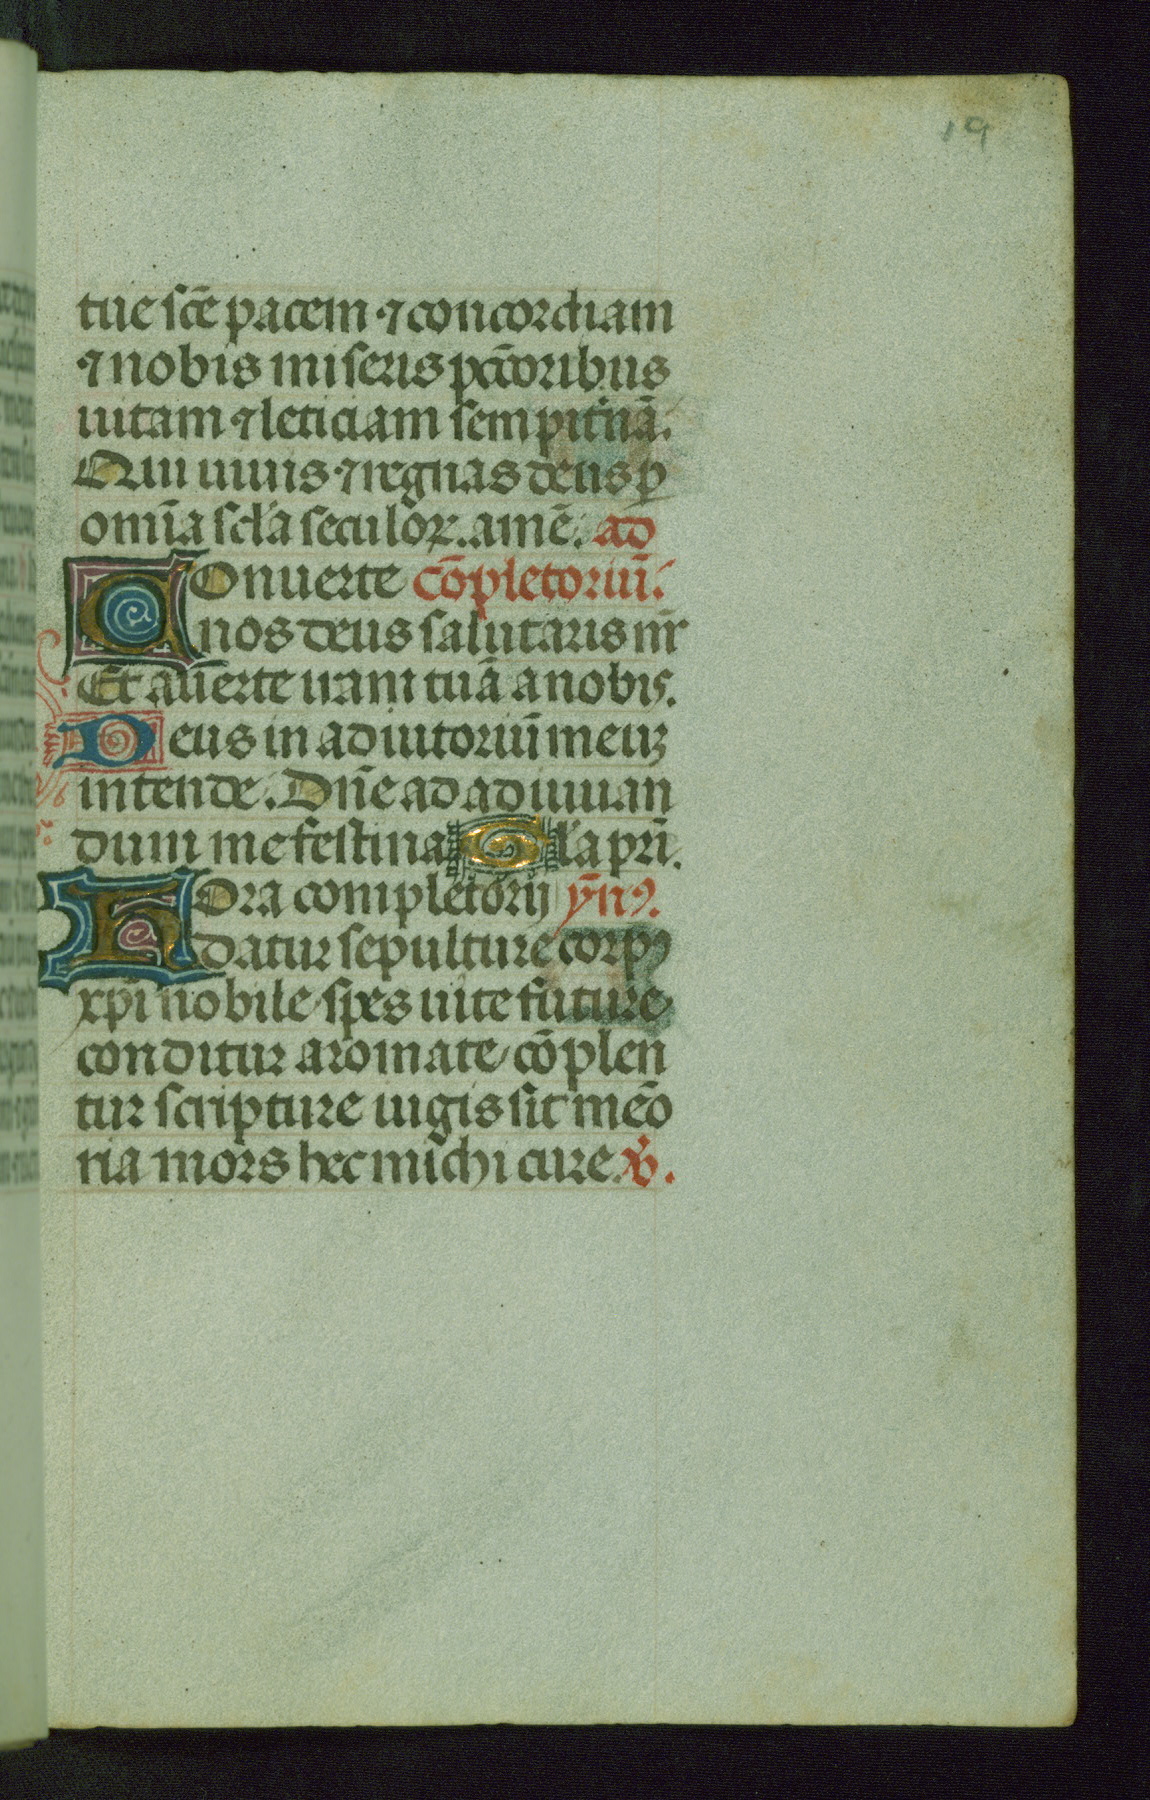 19
tue sc̄e pacem ⁊ concordiam
⁊ nobis miseris pctōribus
uitam ⁊ leticiam sempit̄nā.
Qui uiuis ⁊ regnas deus ꝑ
omīa scl̄a seculoꝝ. amē. ad
Conuerte cōpletoriū.
nos deus salutaris nr̄
Et auerte iram tuā a nobis.
Deus in adiutoriū meuꝫ
intende. Dn̄e ad adiuuan
dum me festina Gl̄a pr̄i.
Hora completorij ȳnꝰ.
datur sepulture corpꝰ
xp̄i nobile spes uite future
conditur aromate cōplen
tur scripture iugis sit mēo
ria mors hec michi cure. v̄.